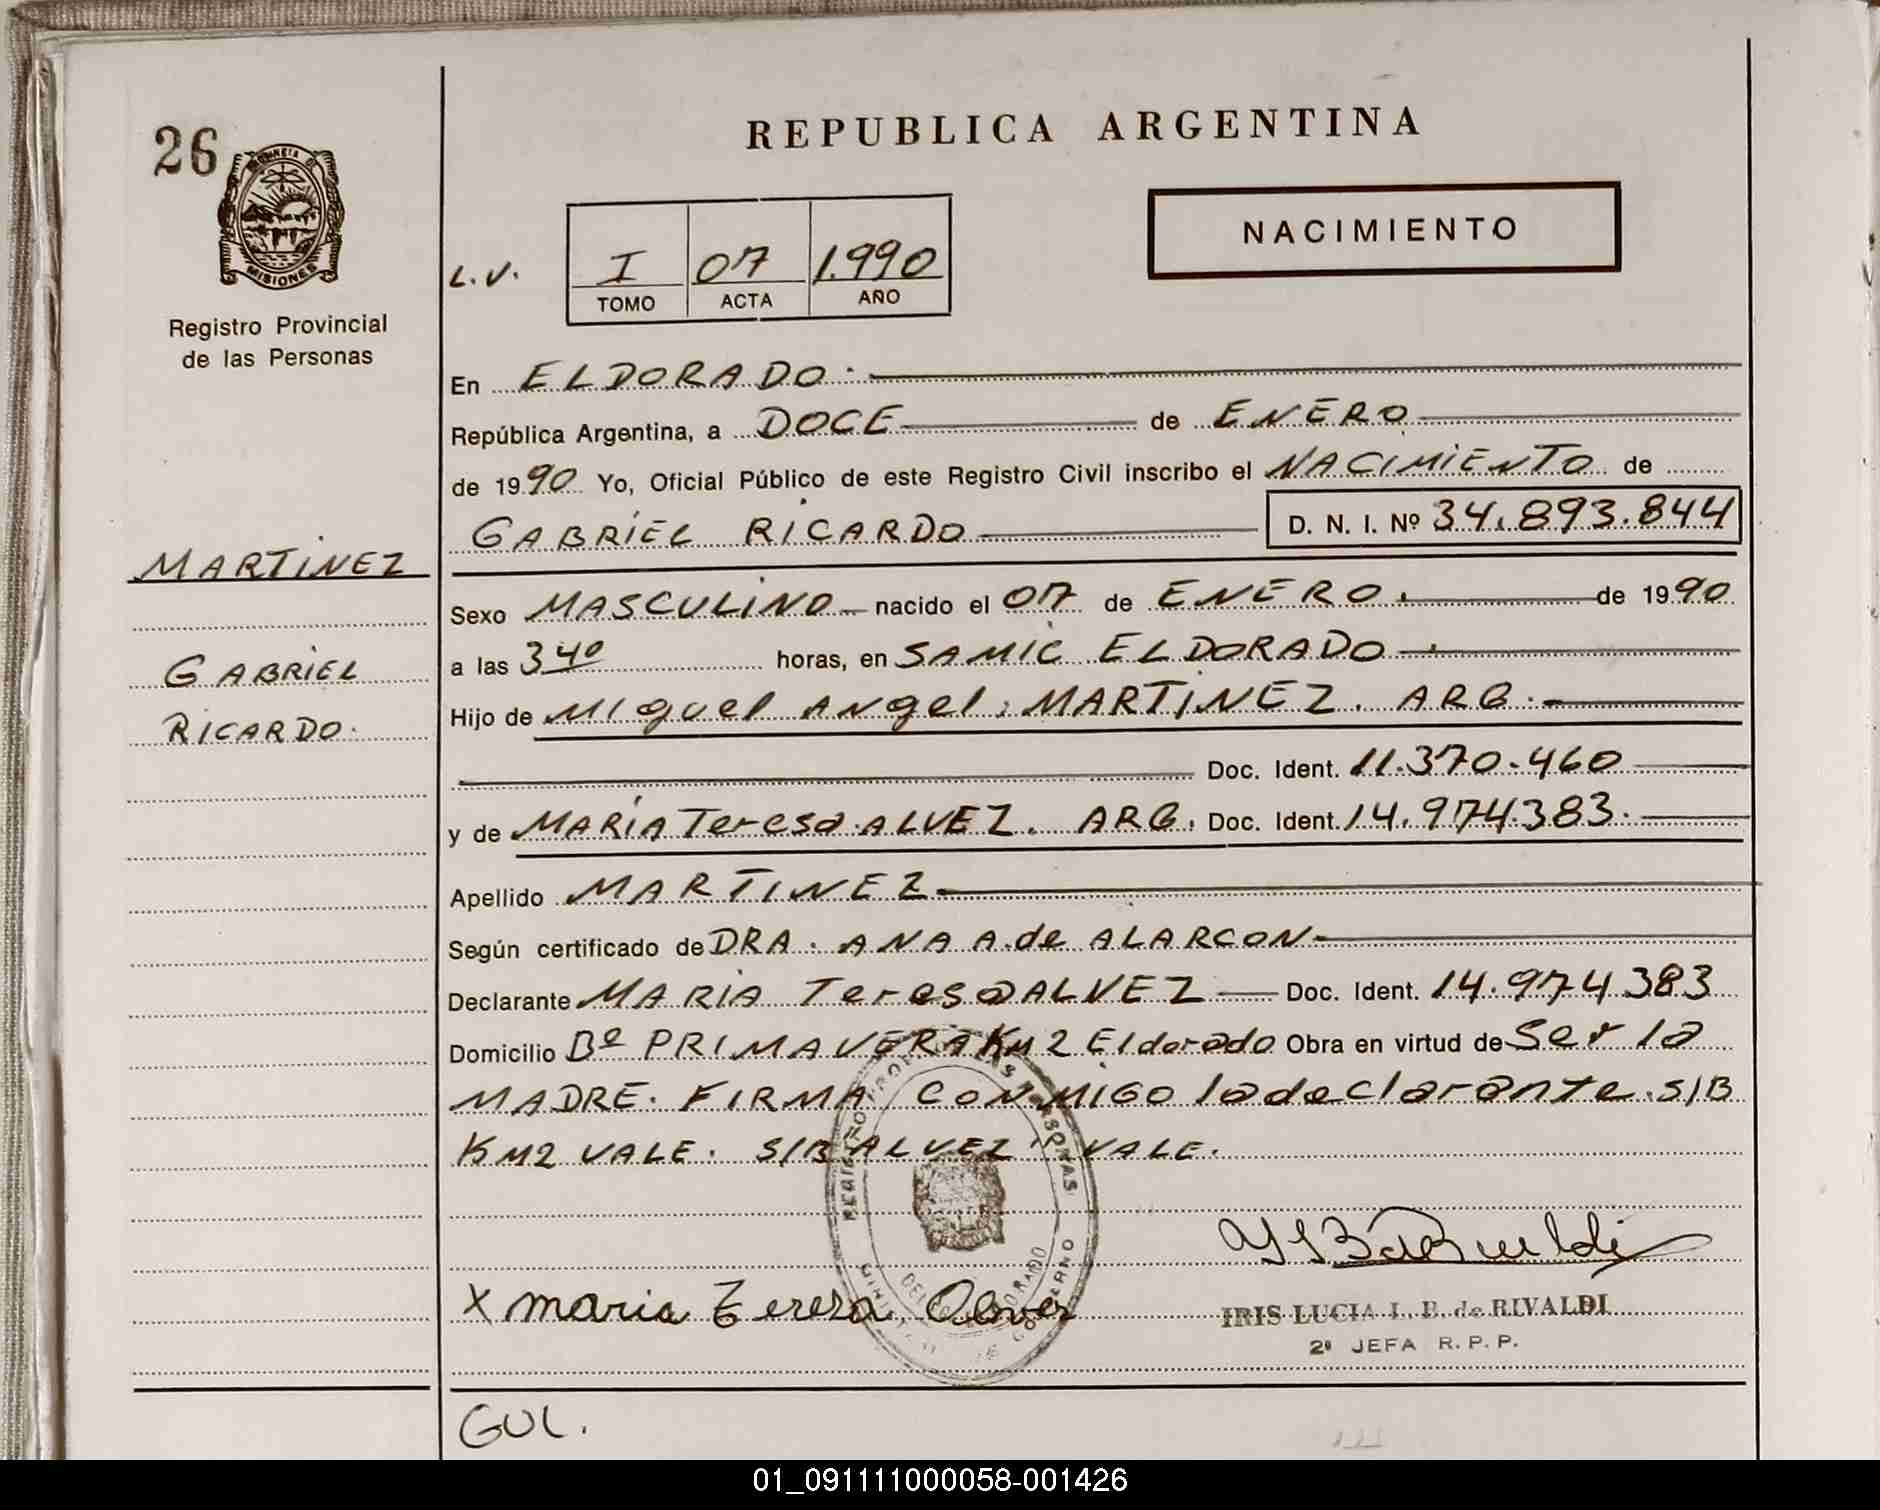 26
PROVINCIA DE
MISIONES
Registro Provincial
de las Personas
MARTINEZ
GABRIEL
RICARDO.
REPUBLICA ARGENTINA
NACIMIENTO
L.V.
I 07 1.990
TOMO ACTA AÑO
En ELDORADO.
República Argentina, a DOCE de ENERO
de 1990 Yo, Oficial Público de este Registro Civil inscribo el NACIMIENTO de
GABRIEL RICARDO D. N. I. Nº 34.893.844
Sexo MASCULINO nacido el 07 de ENERO. de 1990
a las 3 40 horas, en SAMIC ELDORADO
Hijo de Miguel Angel. MARTINEZ. ARG.
Doc. Ident. 11.370.460
y de MARÍA Teresa ALVEZ. ARG. Doc. Ident. 14.974.383.
Apellido MARTINEZ
Según certificado de DRA. ANA A. de ALARCON
Declarante MARIA Teresa ALVEZ Doc. Ident. 14.974 383
Domicilio Bº PRIMAVERA KM 2 Eldorado Obra en virtud de Ser la
MADRE. FIRMA CONMIGO la declarante. S/B
KM2 VALE. S/B ALVEZ VALE.
X maria Tereza Alvez
IRIS LUCIA L. B. de RIVALDI
2º JEFA R. P. P.
GUL.
01_091111000058-001426